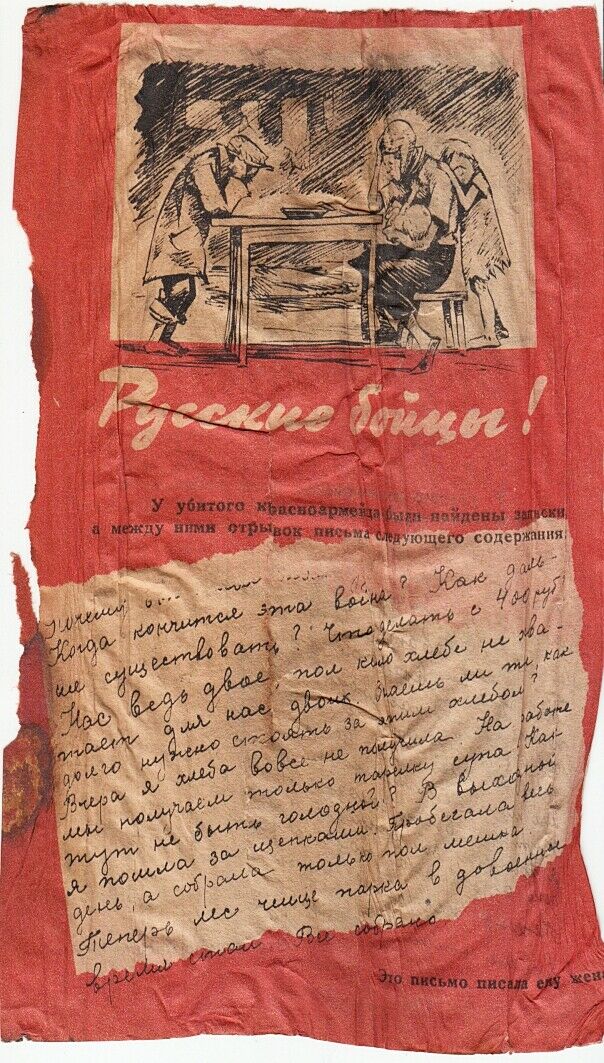 Русские бойцы!
У убитого красноармейца были найдены записки,
а между ними отрывок письма следующего содержания:
почему
Когда кончится эта война? Как даль-
ше существовать? Что делать с 400 руб?
Нас ведь двое, пол кило хлеба не хва-
тает для нас двоих знаешь ли ты, как
долго нужно стоять за этим хлебом?
Вчера я хлеба вовсе не получила. На работе
мы получаем только тарелку супа. Как
тут не быть голодной? В выходной
я пошла за щепками. Пробегала весь
день, а собрала только пол мешка.
Теперь лес чище парка в довоенны
время стал Все собрано
Это письмо писала ему жен